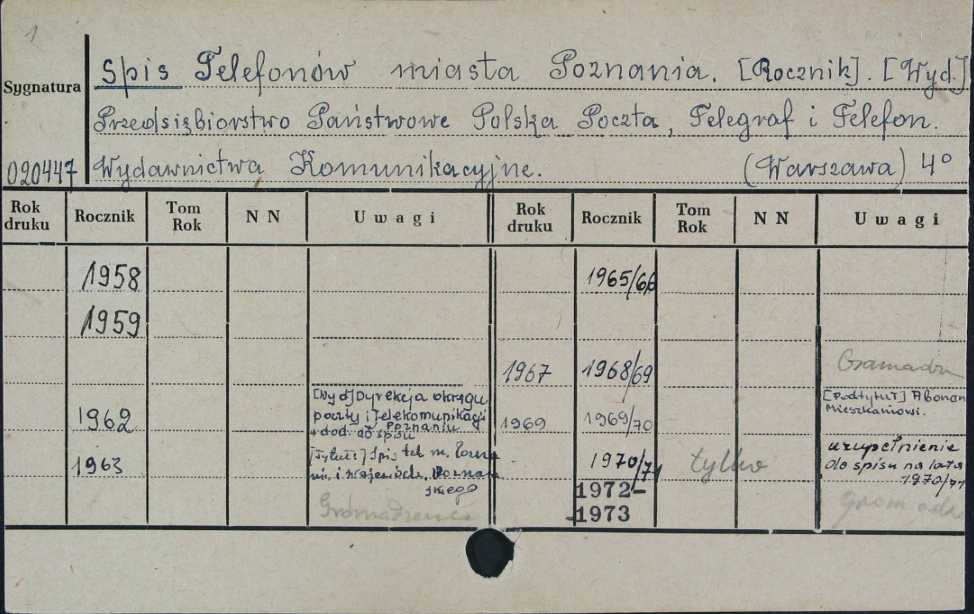 1
Sygnatura
Spis Telefonów miasta Poznania. [Rocznik]. [Wyd.]
Przedsiębiorstwo Państwowe Polska Poczta, Telegraf i Telefon.
020447 Wydawnictwa Komunikacyjne. (Warszawa) 4°
Rok druku Rocznik Tom Rok N N Uwagi Rok druku Rocznik Tom Rok N N Uwagi
1958 1965/66
1959
1967 1968/69
1962 [Wyd] Dyrekcja okręgu
poczty i Telekomunikacji
w Poznaniu
+ dod. do spisu
1969 1969/70 [Podtytuł] Abonen
Mieszkaniowi.
1963 [Tytuł:] Spis tel. m. Pozna
nia i wojewódz. Poznań
skiego
1970/71 tylko uzupełnienie
do spisu na lata
1970/71
Gromadzenie
1972-
-1973